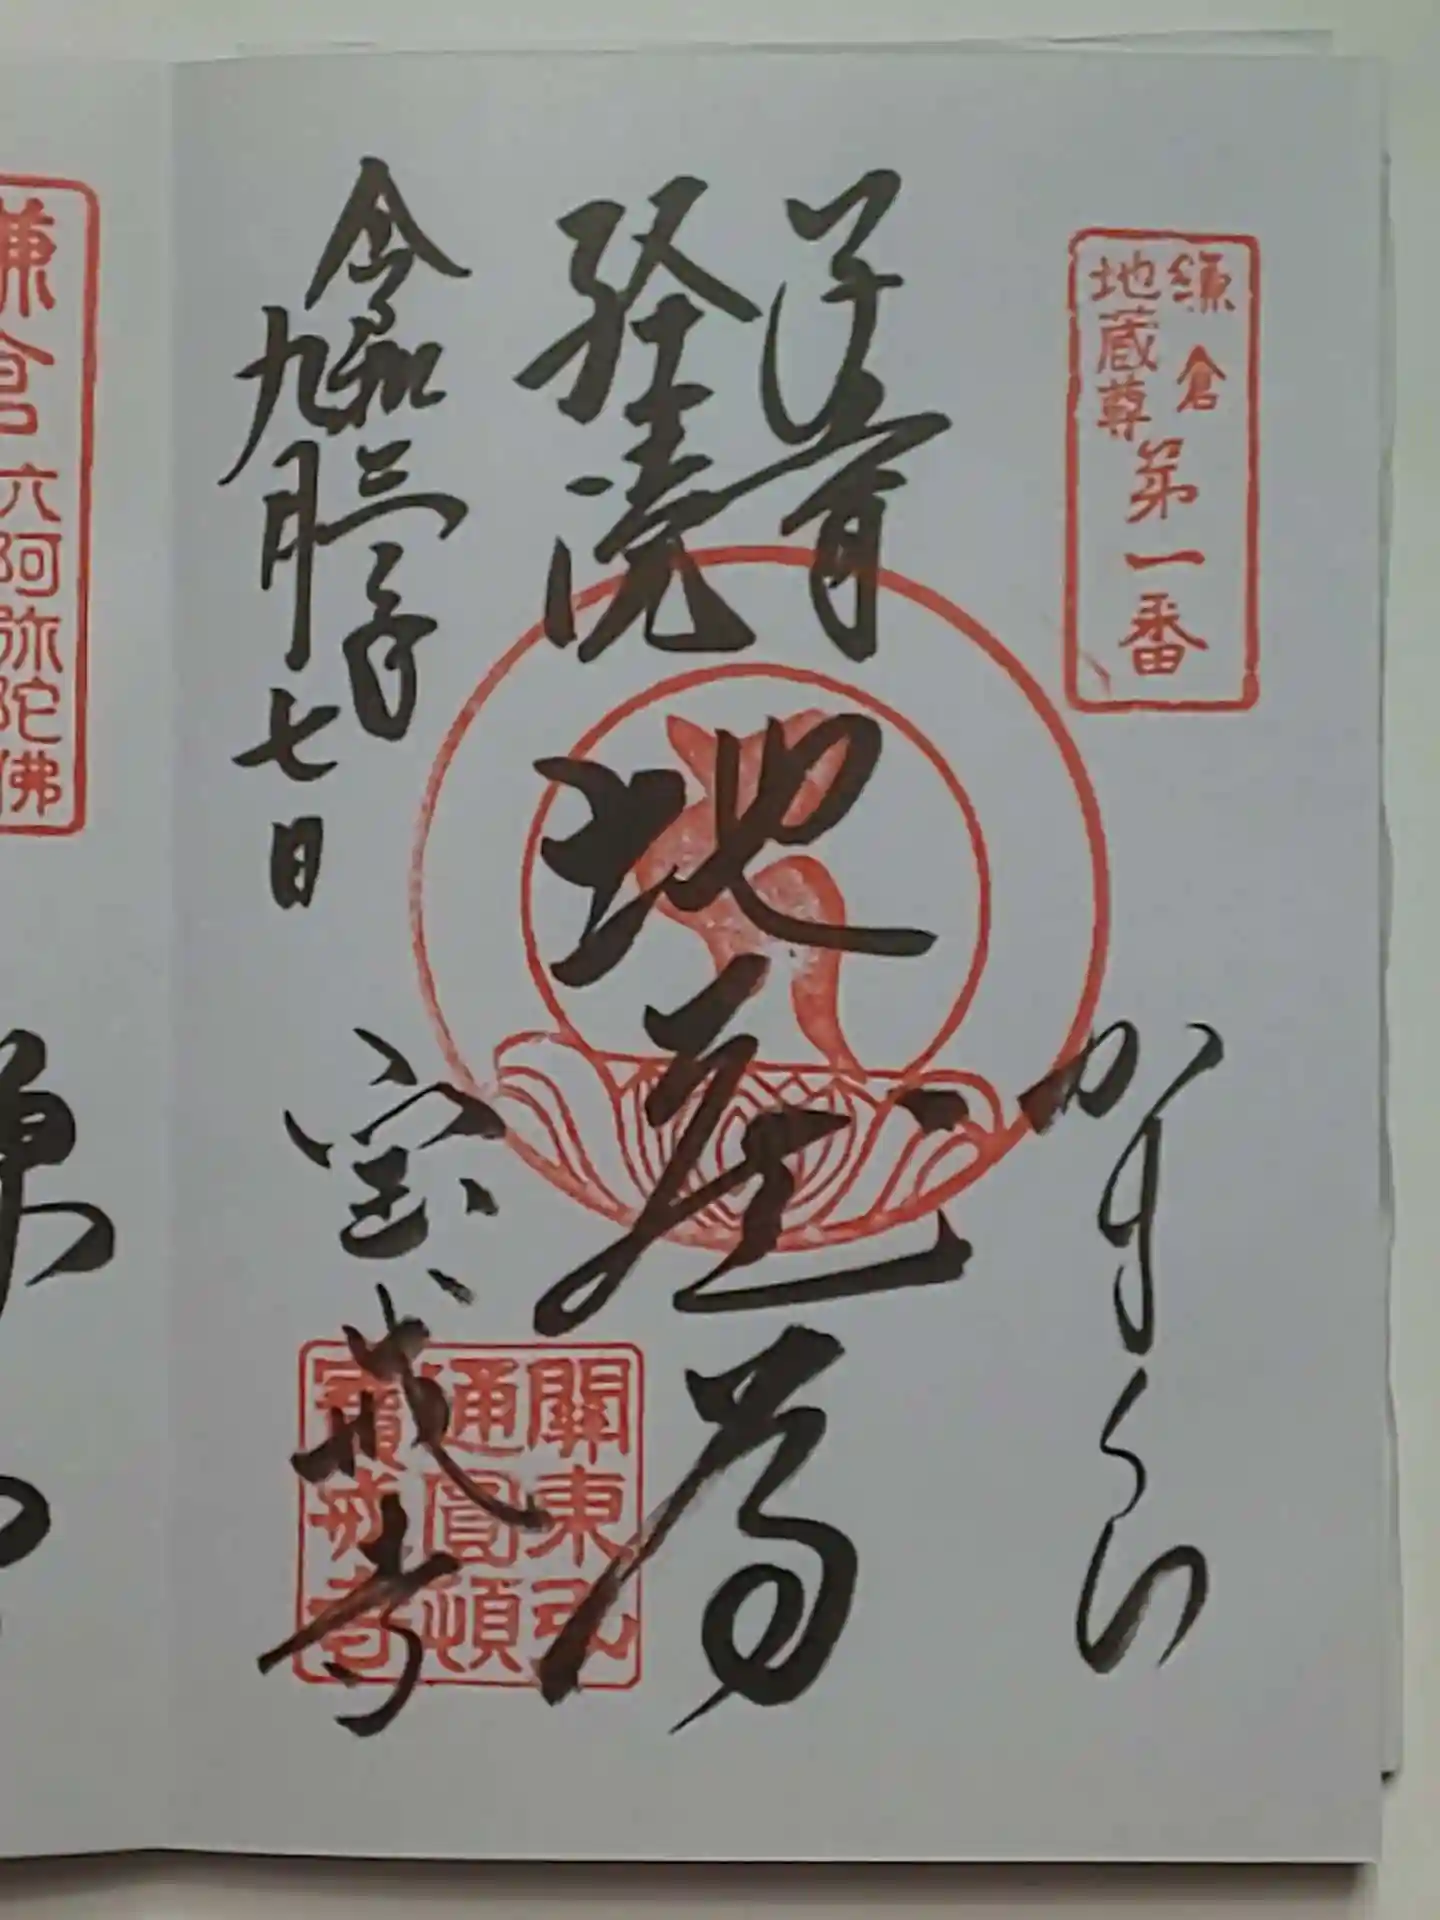 鎌倉
地蔵尊
第一番
かまくら
子育
経読
地蔵尊
令和三年
九月七日
宝戒寺
關東弘
通圓頓
寶戒寺
鎌倉六阿弥陀佛